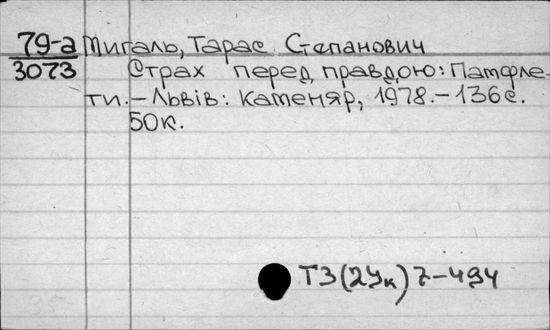 79-а Мигаль, Тарас Степанович
3073 Страх перед правдою: Памфле-
ти. – Львів: Каменяр, 1978. – 136 с.
50к.
Т3(2Ук)7-494